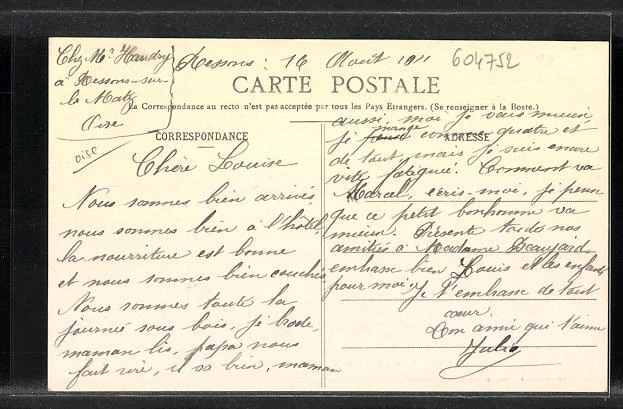 Chez Mr Handry
à Ressons-sur-
le Matz
Oise
Ressons : 16 Août 1911
604752
CARTE POSTALE
La Correspondance au recto n'est pas acceptée par tous les Pays Étrangers. (Se renseigner à la Poste.)
CORRESPONDANCE
ADRESSE
oise
Chère Louise
Nous sommes bien arrivés,
nous sommes bien à l'hôtel,
la nourriture est bonne
et nous sommes bien couchés
Nous sommes toute la
journée sous bois, je brode,
maman lis, papa nous
fait rire, il va bien, maman
aussi, moi je vais mieux
je mange comme quatre et
de tout, mais je suis encore
vite fatiguée. Comment va
Marcel, écris-moi, je pense
que ce petit bonhomme va
mieux. Présente toutes nos
amitiés à Madame Beaujard
embrasse bien Louis et les enfants
pour moi. Je t'embrasse de tout
coeur.
Ton amie qui t'aime
Julia